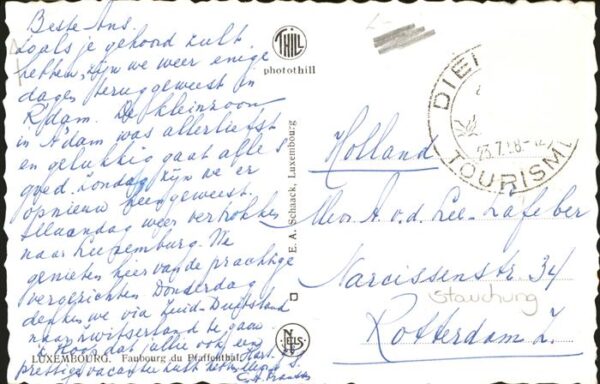 Beste Ans.
Zoals je gehoord zult
hebben, zijn we weer enige
dagen teruggeweest in
R'dam. De kleinzoon
in A'dam was allerliefst
en gelukkig gaat alles
goed. Zondag zijn we er
opnieuw heengeweest.
Maandag weer vertrokken
naar Luxemburg. We
genieten hier van de prachtige
vergezichten. Donderdag
denken we via Zuid-Duitsland
naar Zwitserland te gaan.
Hoop dat jullie ook een
prettige vacantie zult hebben
LUXEMBOURG. Faubourg du Pfaffenthal.
THILL
photothill
E. A. Schaack, Luxembourg
NELS
DIE
23.7.
TOURISM
Holland
Mevr. A. v. d. Lee-Lafeber
Narcissenstr. 34
Stauchung
Rotterdam Z.